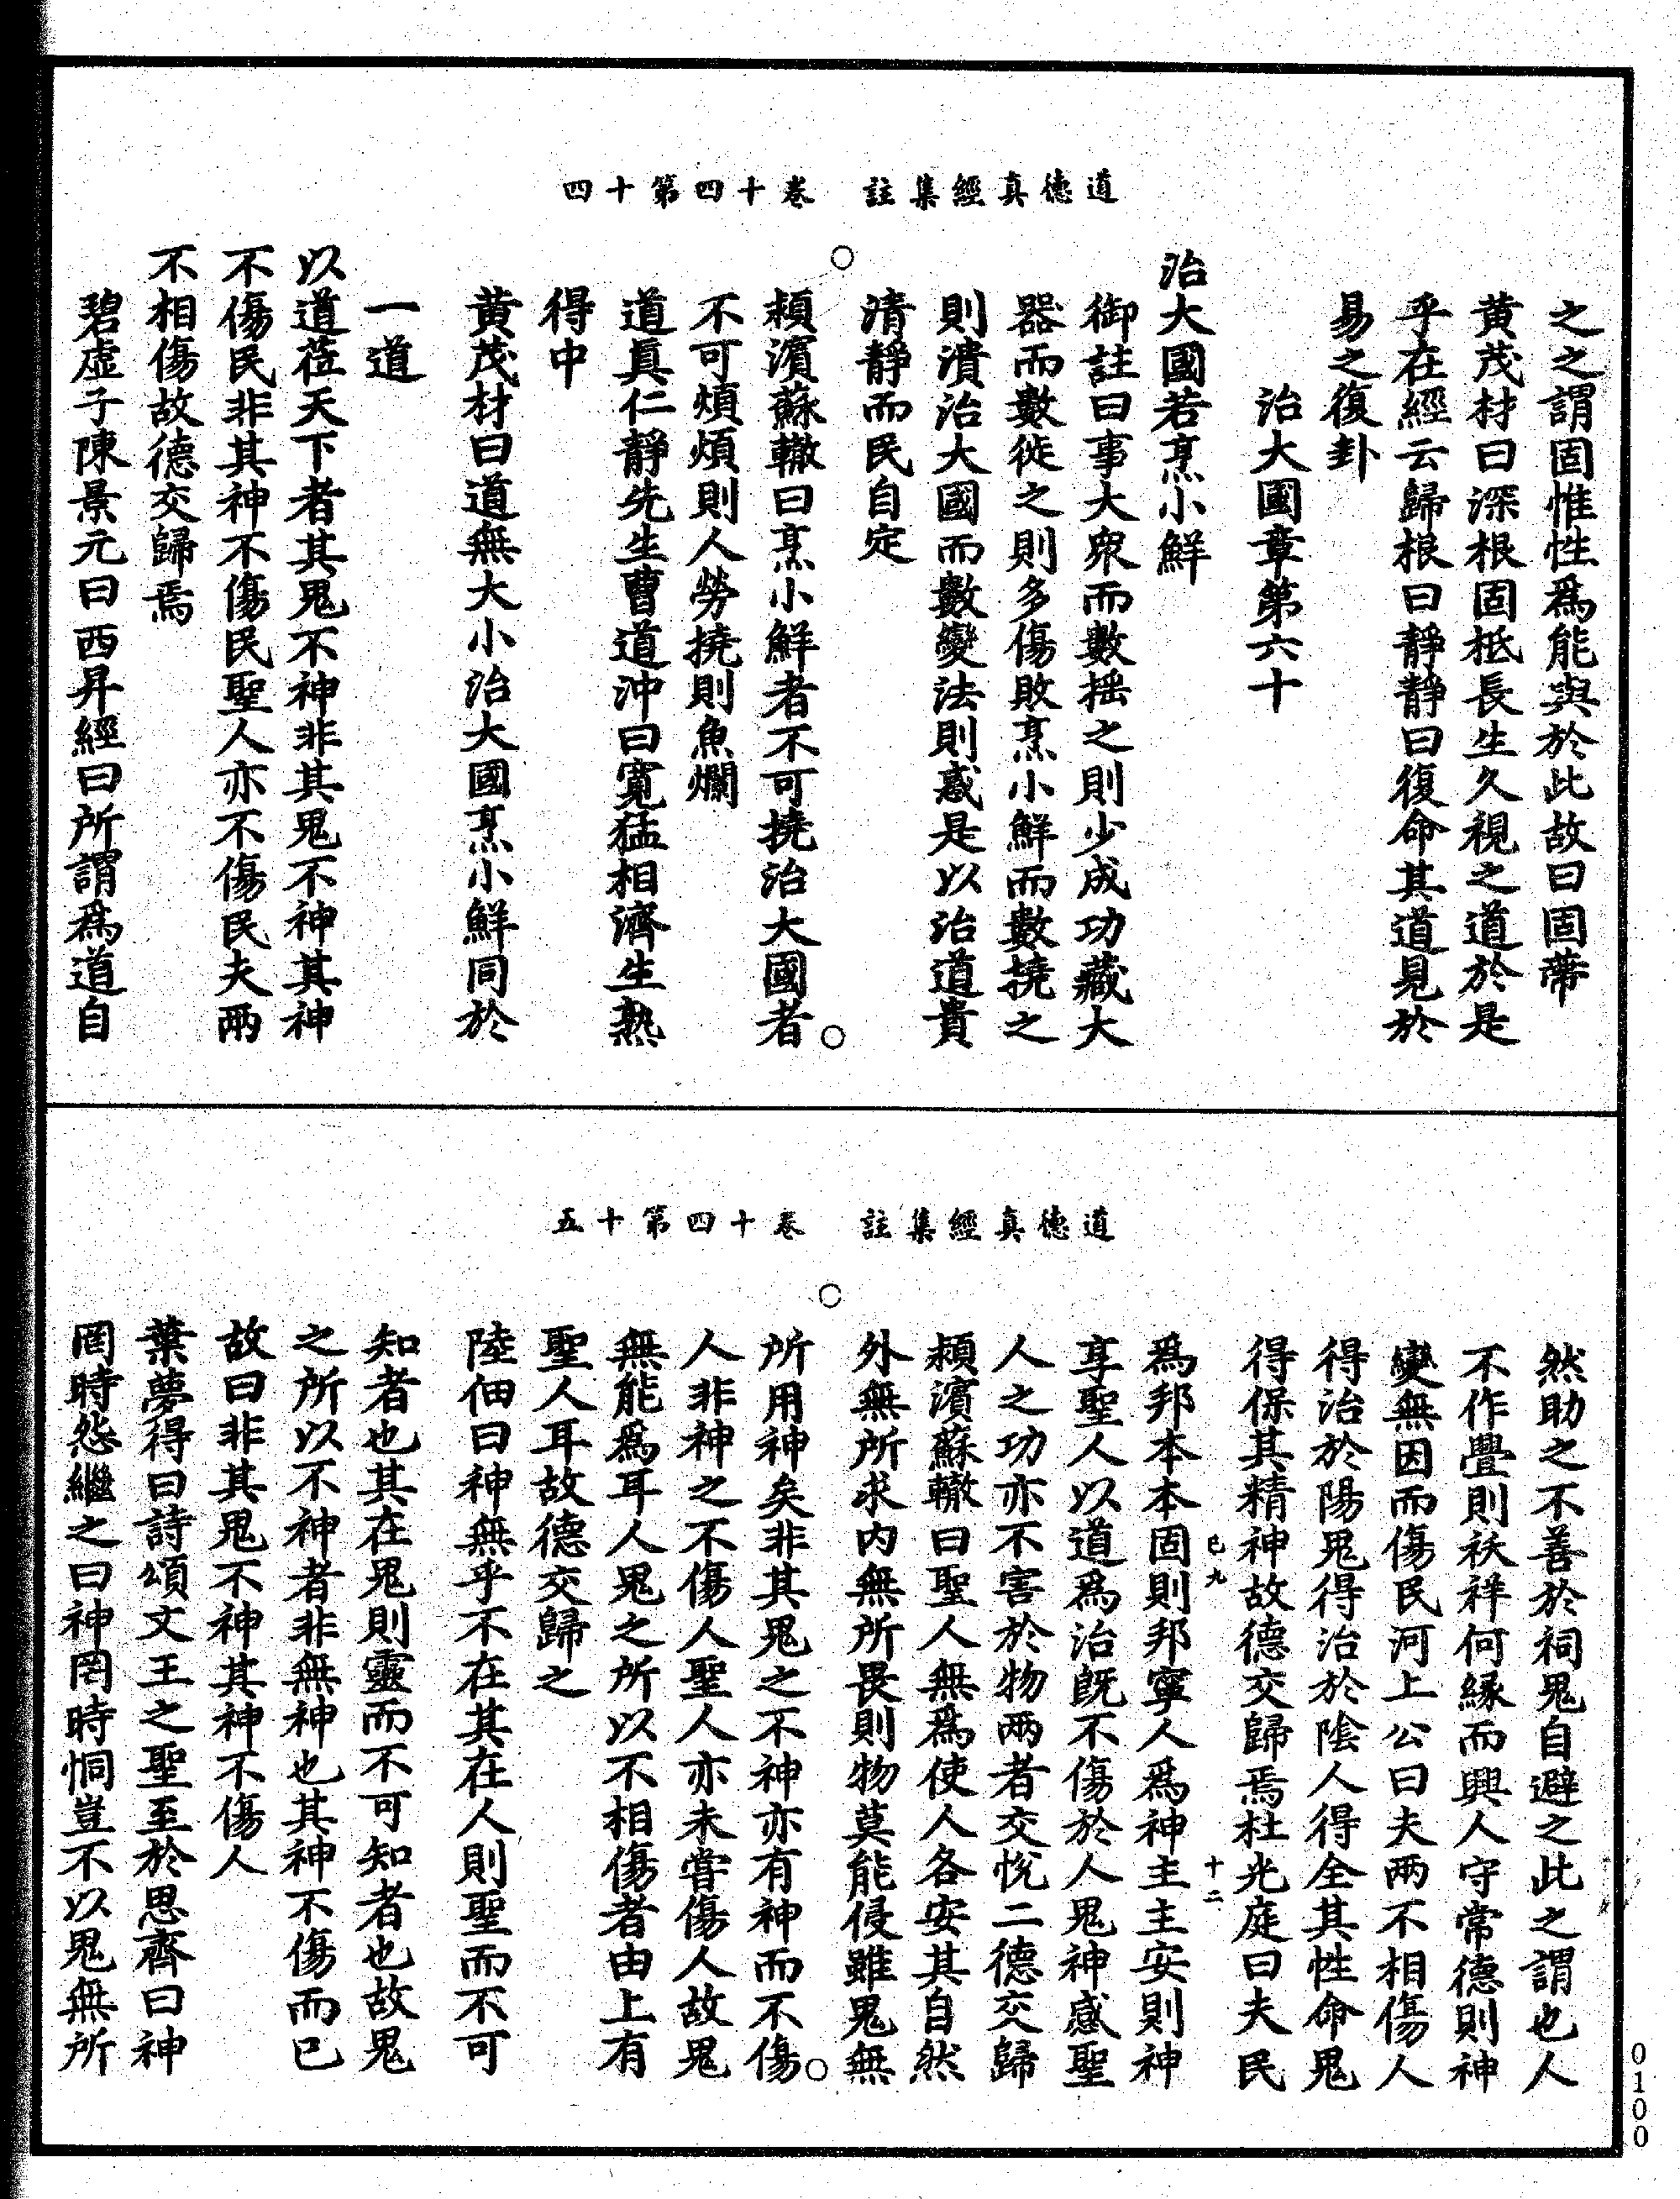 道德真經集註　卷十四第十四
之之謂固惟性爲能與於此故曰固蔕
黄茂材曰深根固柢長生久視之道於是
乎在經云歸根曰靜靜曰復命其道見於
易之復卦
治大國章第六十
治大國若烹小鮮
御註曰事大衆而數揺之則少成功藏大
器而數徙之則多傷敗烹小鮮而數撓之
則潰治大國而數變法則惑是以治道貴
清靜而民自定
潁濵蘇轍曰烹小鮮者不可撓治大國者
不可煩煩則人勞撓則魚爛
道眞仁靜先生曹道沖曰寛猛相濟生熟
得中
黄茂材曰道無大小治大國烹小鮮同於
一道
以道莅天下者其鬼不神非其鬼不神其神
不傷民非其神不傷民聖人亦不傷民夫兩
不相傷故德交歸焉
碧虛子陳景元曰西昇經曰所謂爲道自
道德真經集註　卷十四第十五
然助之不善於祠鬼自避之此之謂也人
不作舋則祅祥何緣而興人守常德則神
變無因而傷民河上公曰夫兩不相傷人
得治於陽鬼得治於隂人得全其性命鬼
得保其精神故德交歸焉杜光庭曰夫民
巳九　十二
爲邦本本固則邦寧人爲神主主安則神
享聖人以道爲治旣不傷於人鬼神感聖
人之功亦不害於物兩者交悅二德交歸
潁濵蘇轍曰聖人無爲使人各安其自然
外無所求内無所畏則物莫能侵雖鬼無
所用神矣非其鬼之不神亦有神而不傷
人非神之不傷人聖人亦未嘗傷人故鬼
無能爲耳人鬼之所以不相傷者由上有
聖人耳故德交歸之
陸佃曰神無乎不在其在人則聖而不可
知者也其在鬼則靈而不可知者也故鬼
之所以不神者非無神也其神不傷而已
故曰非其鬼不神其神不傷人
葉夢得曰詩頌文王之聖至於思齊曰神
罔時怨繼之曰神罔時恫豈不以鬼無所
0100